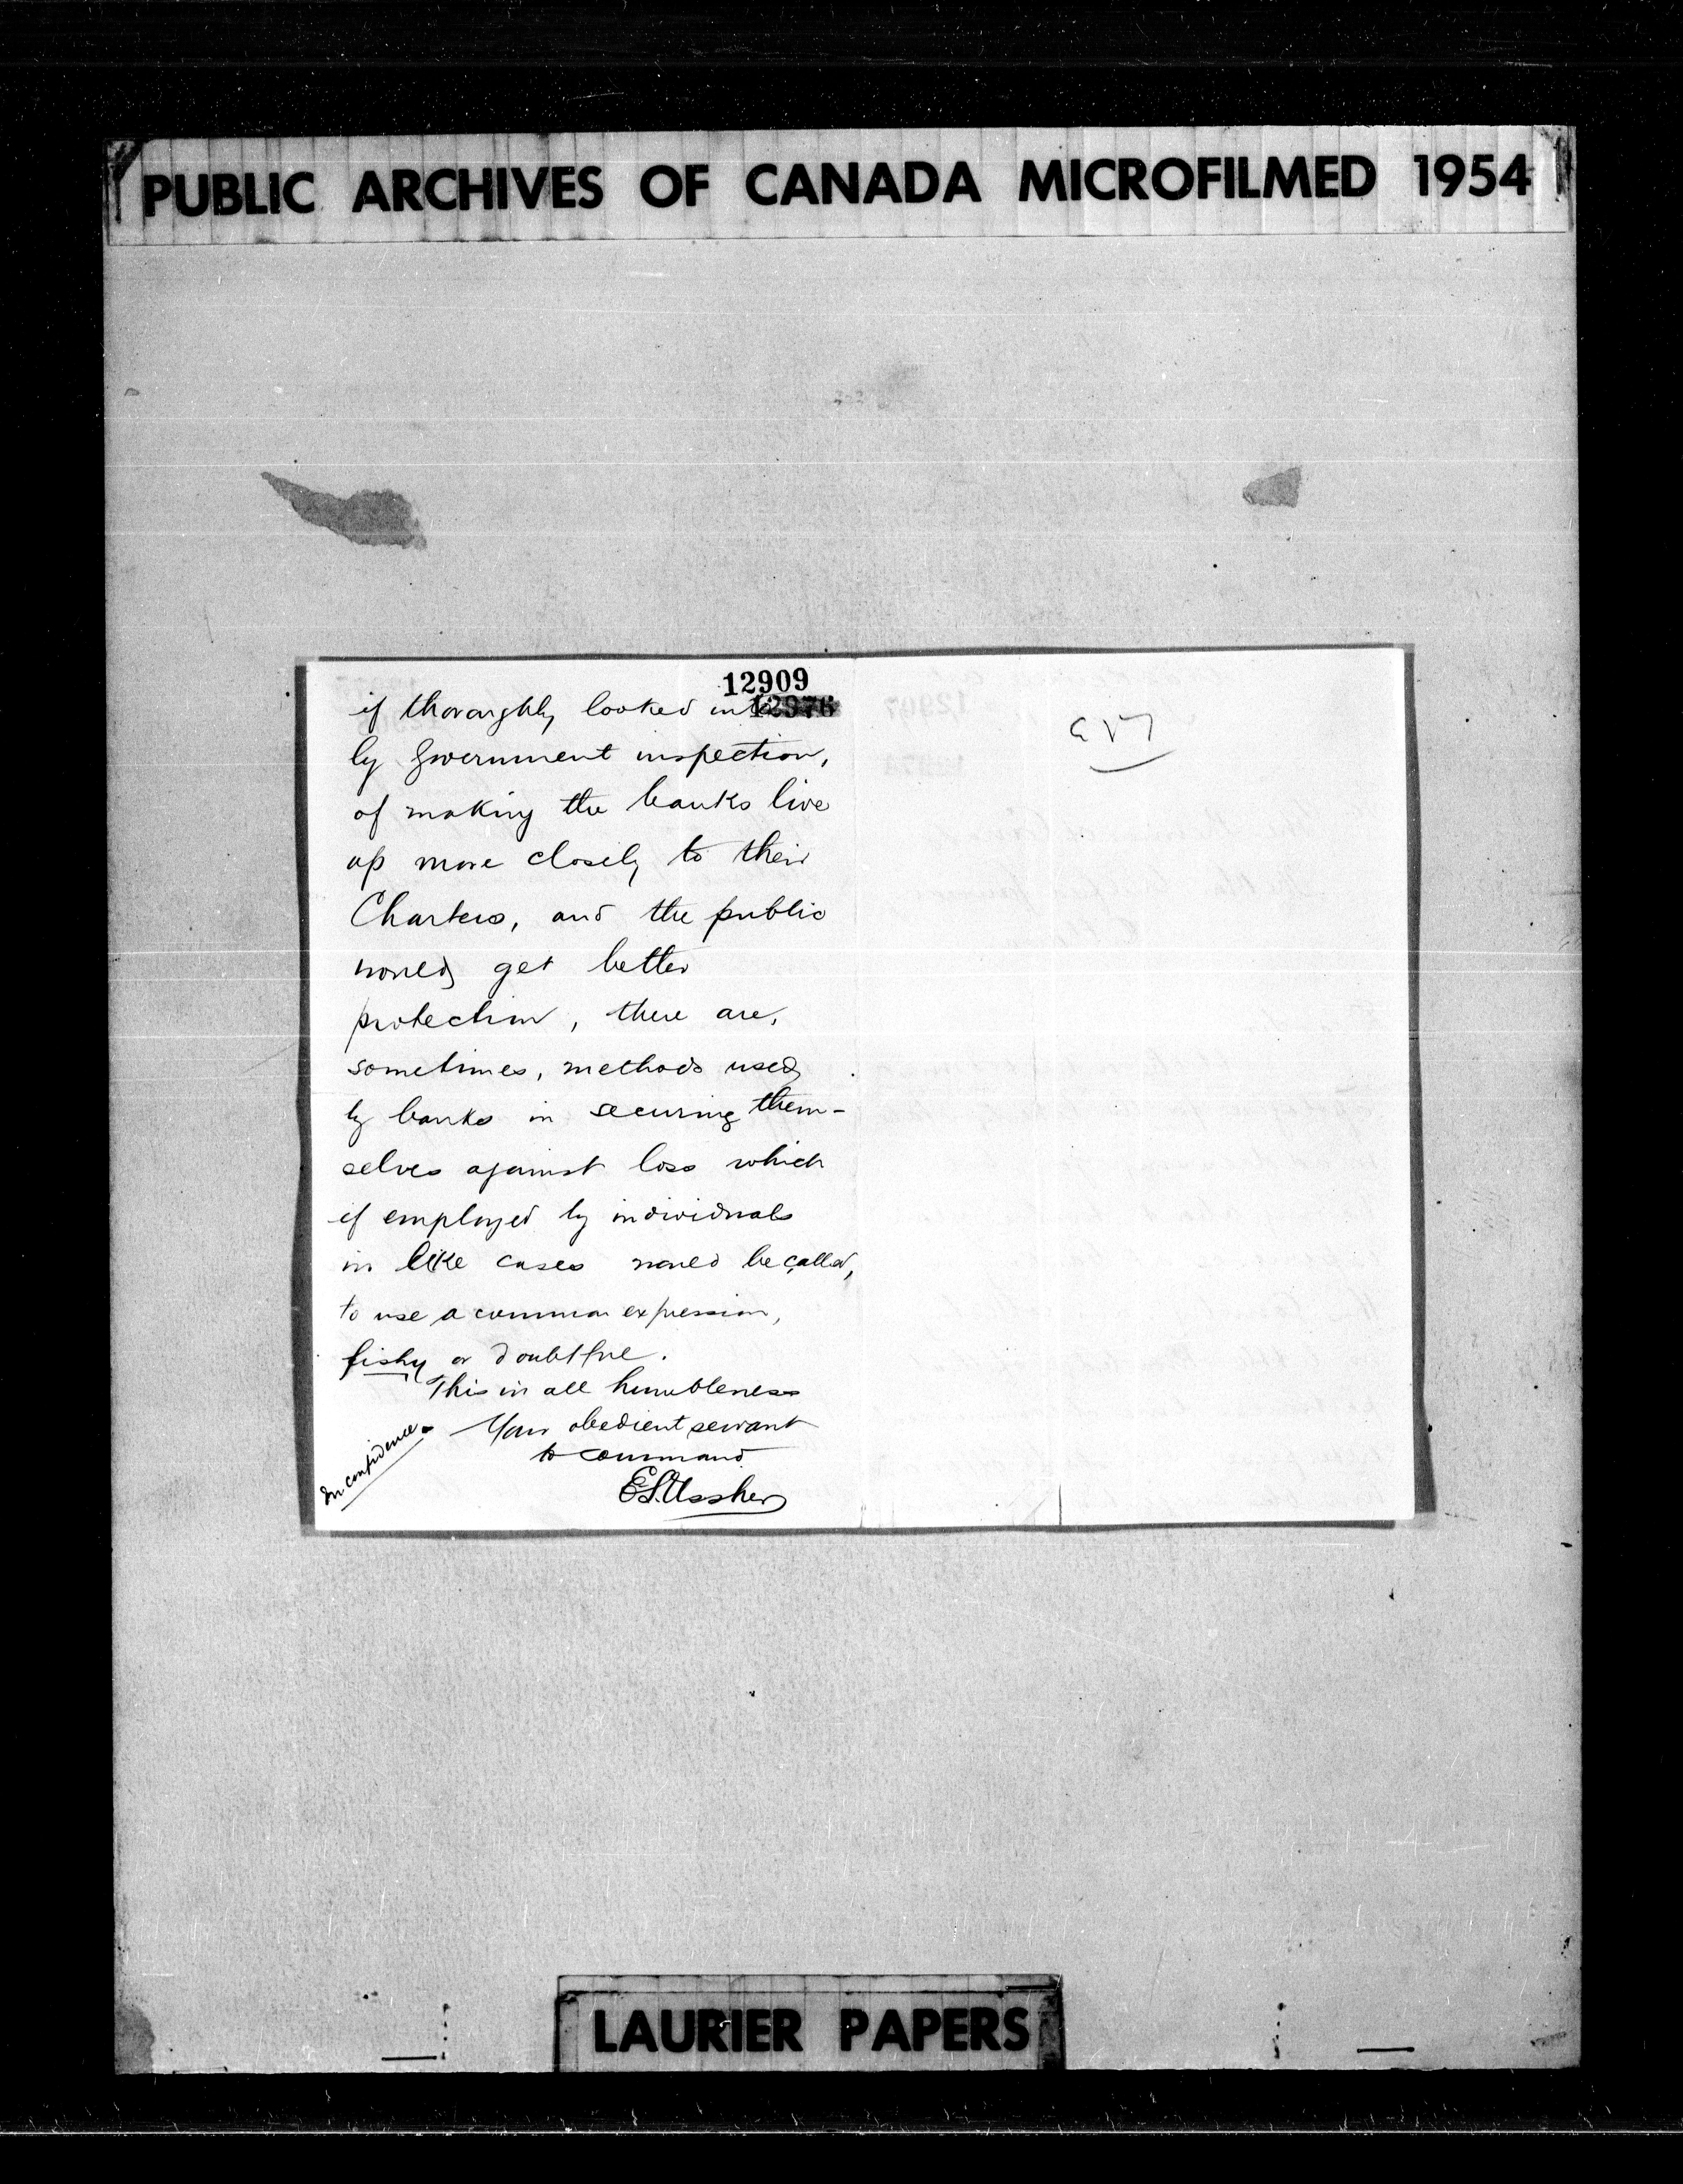 PUBLIC ARCHIVES OF CANADA MICROFILMED 1954
12909
12976
if thoroughly looked into
by Government inspection,
of making the banks live
up more closely to their
Charters, and the public
would get better
protection, there are,
sometimes, methods used
by banks in securing them-
selves against loss which
if employed by individuals
in like cases would be called,
to use a common expression,
fishy or doubtful.
This in all humbleness
Your obedient servant
to command
In confidence.
E.S. Ussher
LAURIER PAPERS